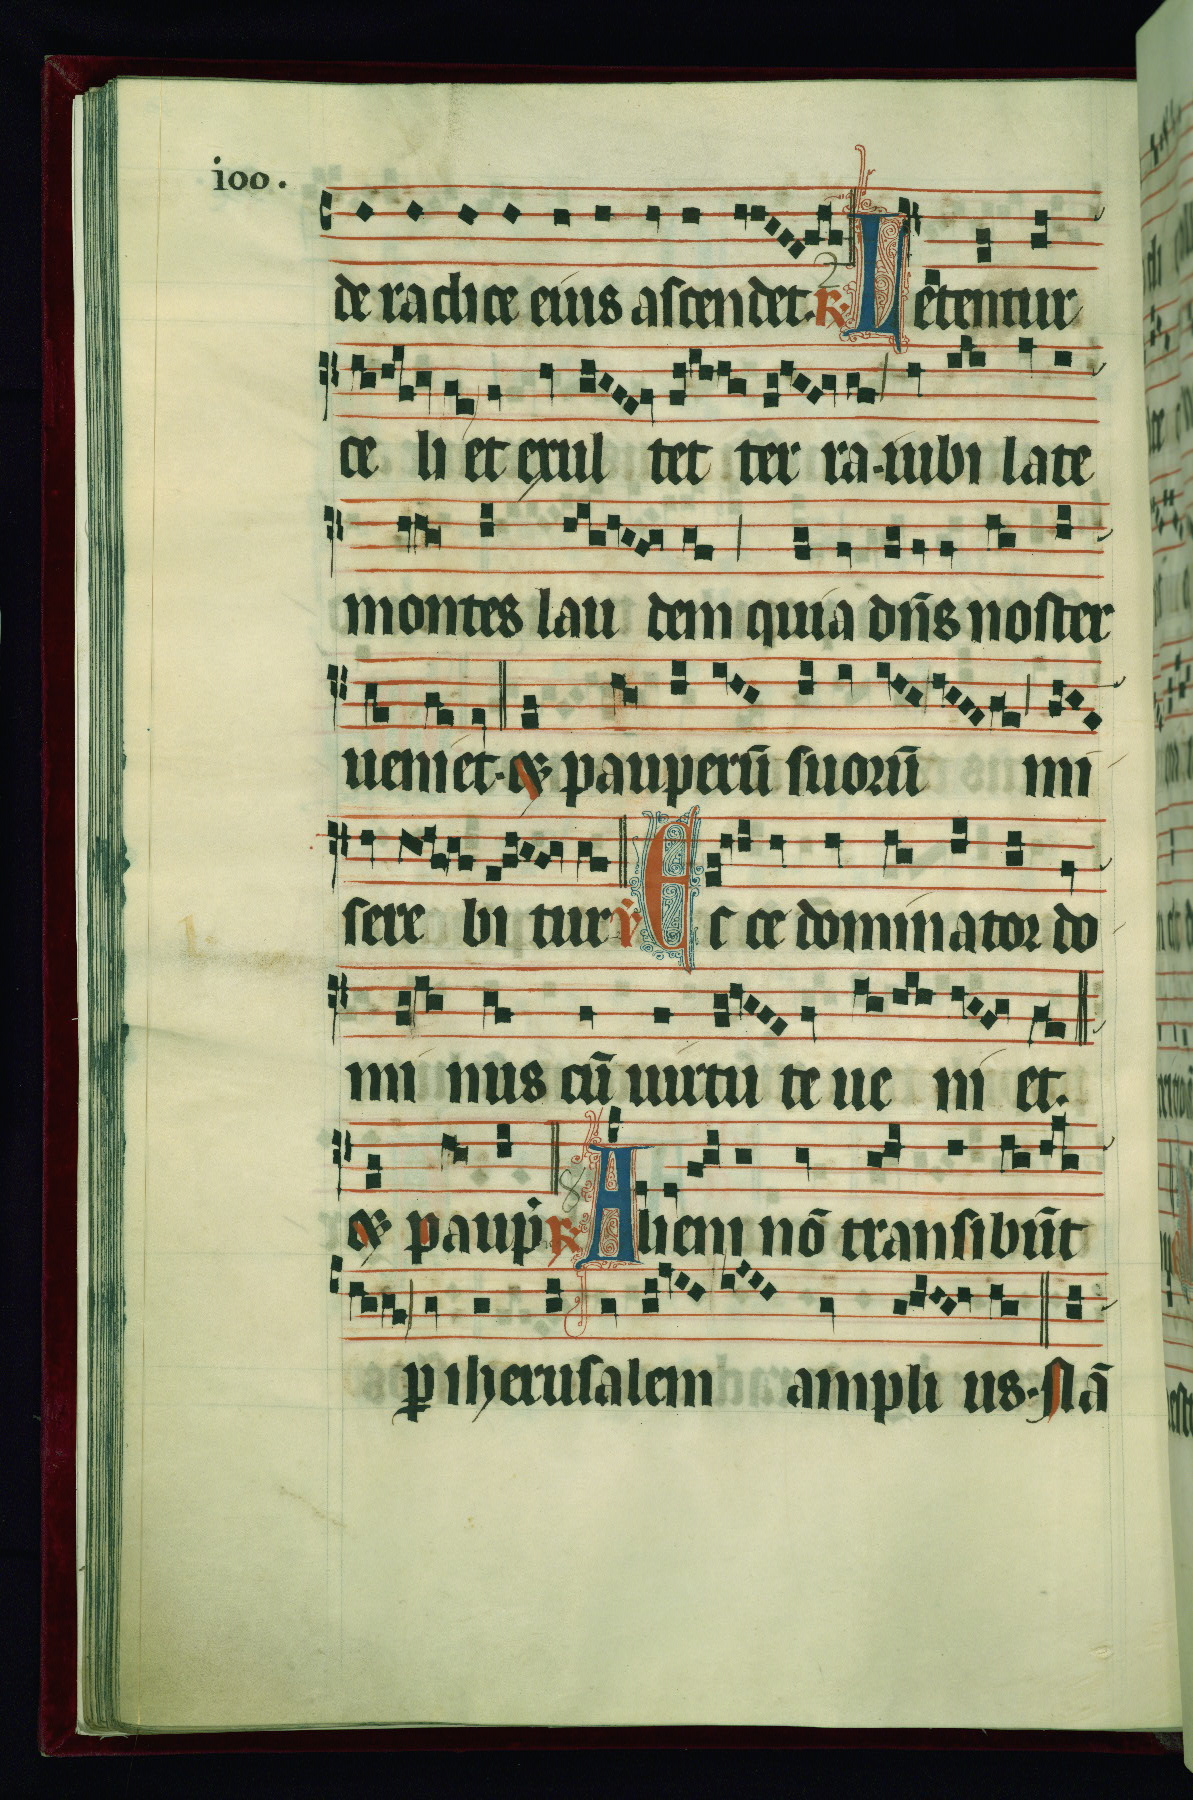 ioo.
2
de radice eius ascendet. R. Letentur
ce li et exul tet ter ra. iubi late
montes lau dem quia dn̄s noster
ueniet. & pauperū suorū mi
sere bi tur V Ec ce dominator do
mi nus cū uirtu te ue ni et.
8
& paup R. Alieni nō transibūt
p iherusalem ampli us. stā